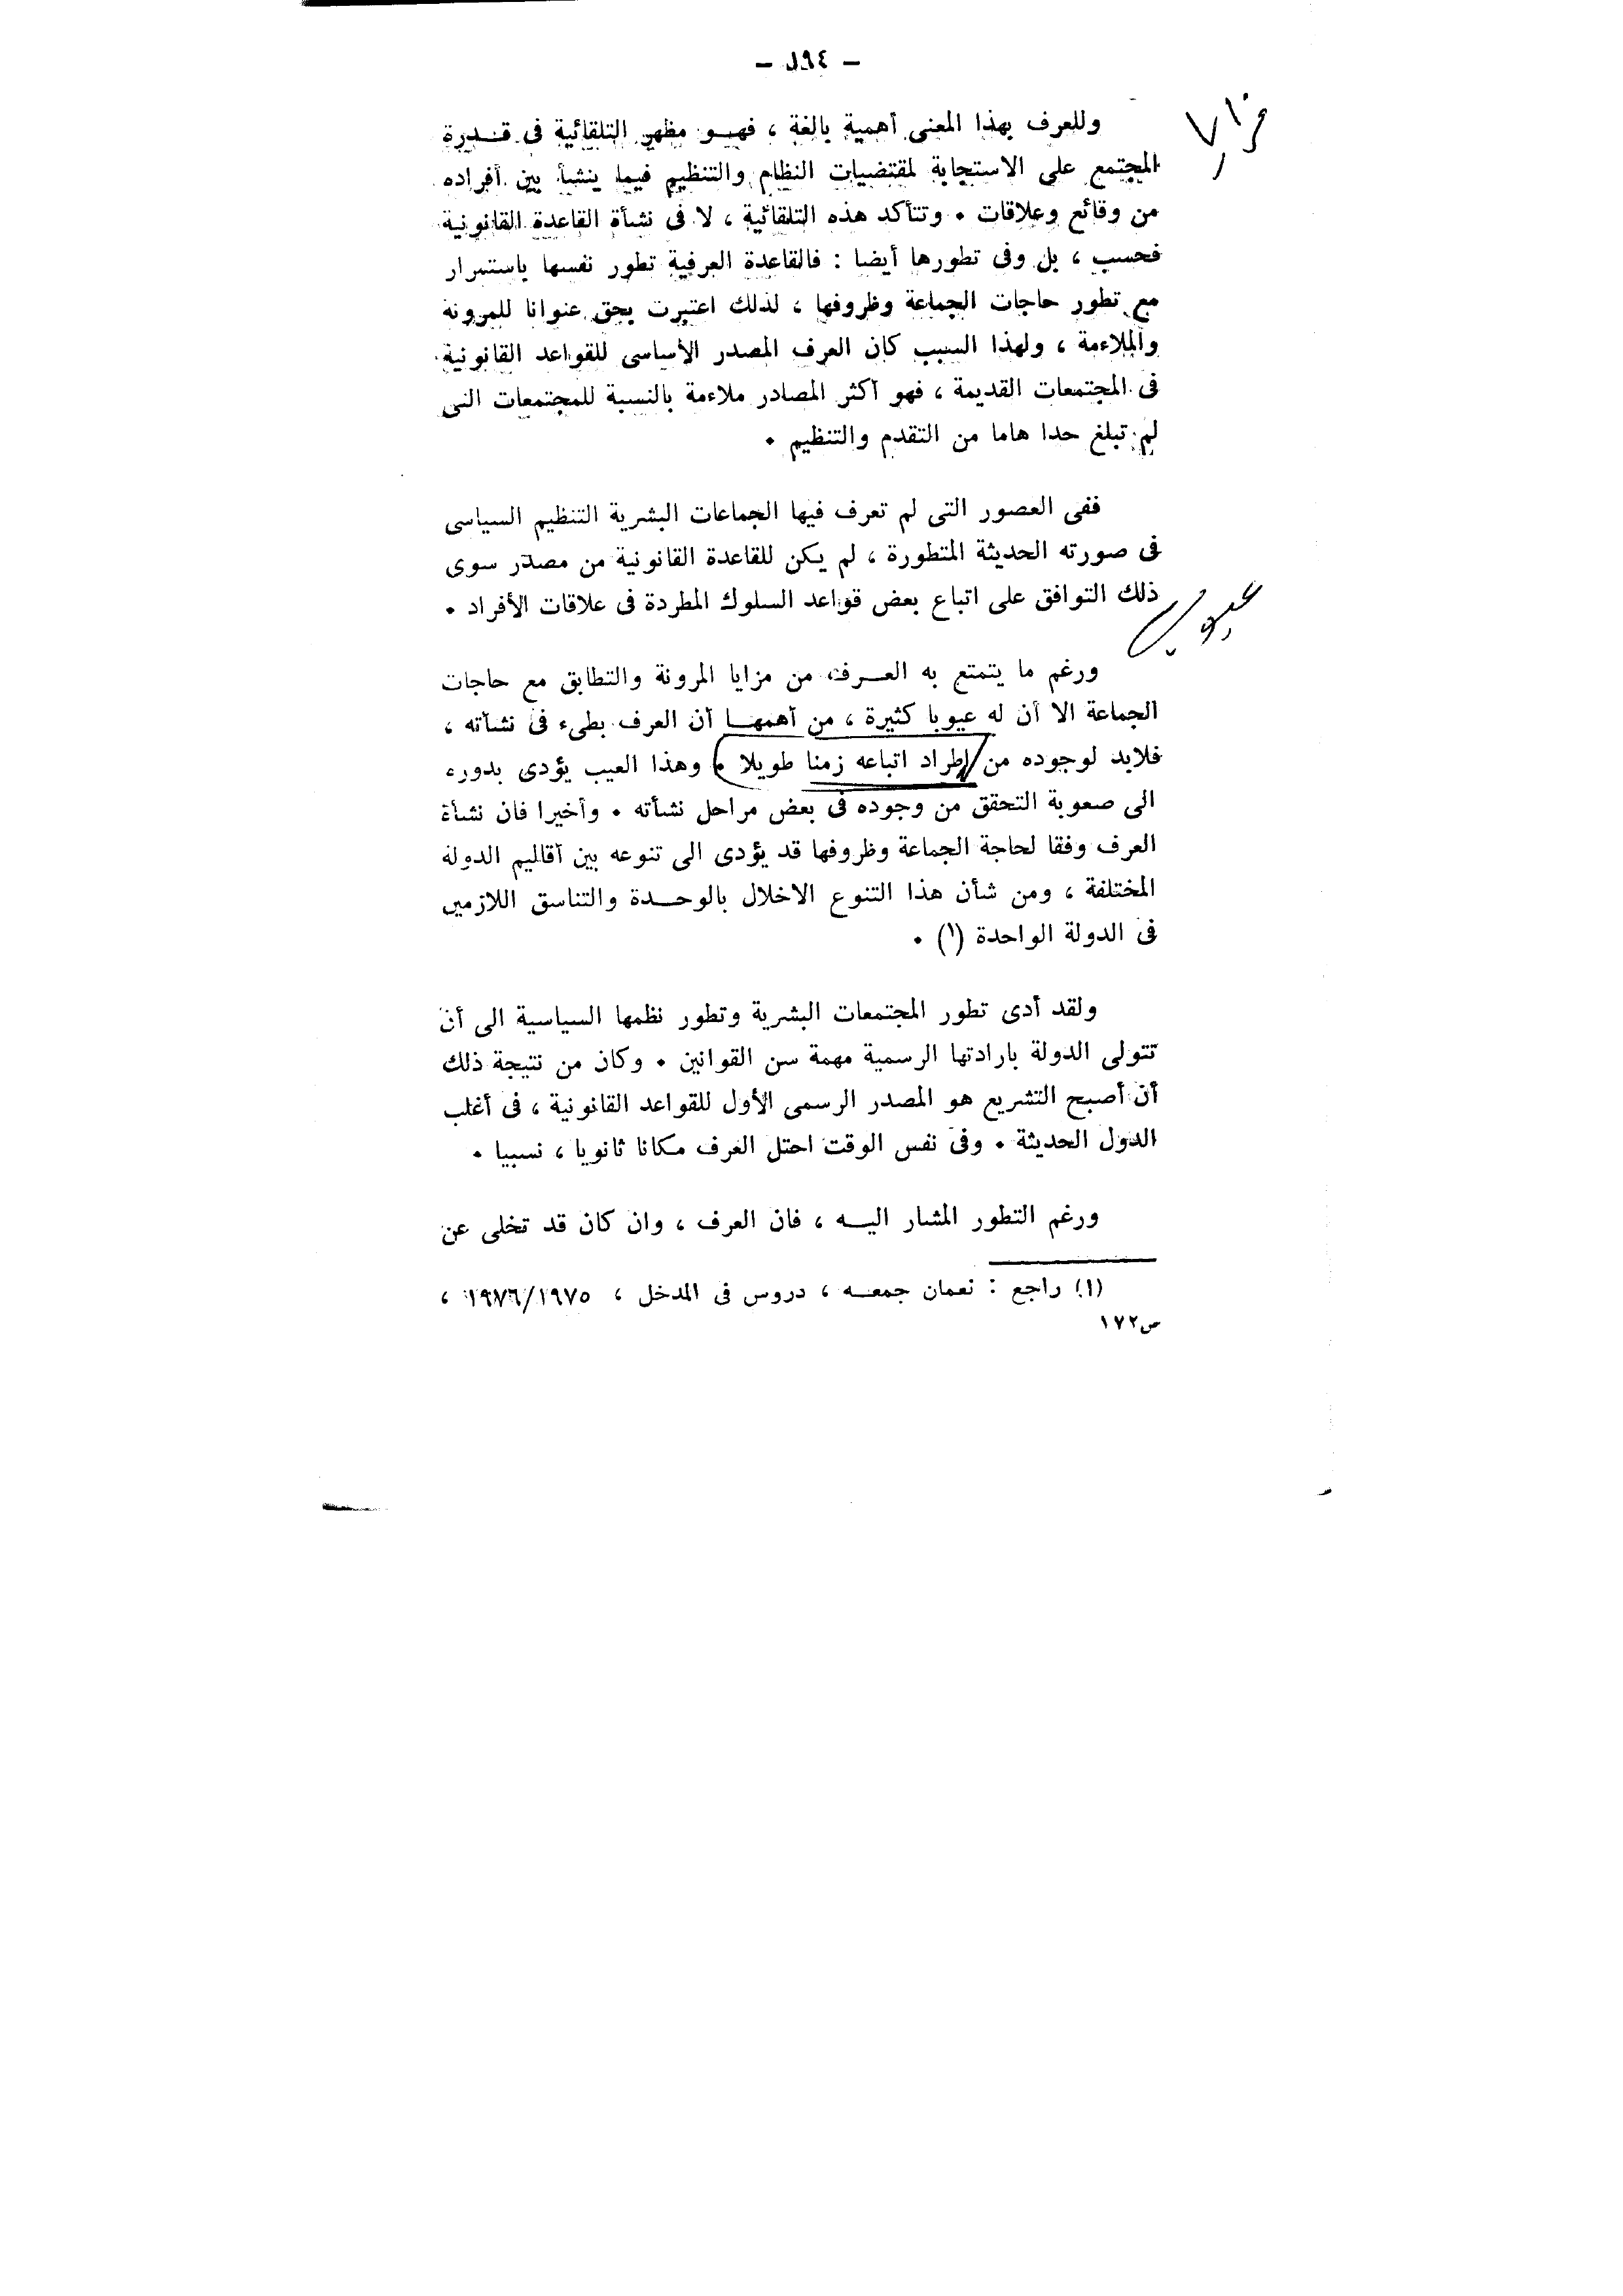 — ١٩٤ —
وللعرف بهذا المعنى أهمية بالغة ، فهو مظهر التلقائية فى قدرة
المجتمع على الاستجابة لمقتضيات النظام والتنظيم فيما ينشأ بين أفراده
من وقائع وعلاقات . وتتأكد هذه التلقائية ، لا فى نشأة القاعدة القانونية
فحسب ، بل وفى تطورها أيضا : فالقاعدة العرفية تطور نفسها باستمرار
مع تطور حاجات الجماعة وظروفها ، لذلك اعتبرت بحق عنوانا للمرونة
والملاءمة ، ولهذا السبب كان العرف المصدر الأساسى للقواعد القانونية
فى المجتمعات القديمة ، فهو أكثر المصادر ملاءمة بالنسبة للمجتمعات التى
لم تبلغ حدا هاما من التقدم والتنظيم .
ففى العصور التى لم تعرف فيها الجماعات البشرية التنظيم السياسى
فى صورته الحديثة المتطورة ، لم يكن للقاعدة القانونية من مصدر سوى
ذلك التوافق على اتباع بعض قواعد السلوك المطردة فى علاقات الأفراد .
عيوب
ورغم ما يتمتع به العرف من مزايا المرونة والتطابق مع حاجات
الجماعة الا أن له عيوبا كثيرة ، من أهمها أن العرف بطىء فى نشأته ،
فلابد لوجوده من اطراد اتباعه زمنا طويلا . وهذا العيب يؤدى بدوره
الى صعوبة التحقق من وجوده فى بعض مراحل نشأته . وأخيرا فان نشأة
العرف وفقا لحاجة الجماعة وظروفها قد يؤدى الى تنوعه بين أقاليم الدولة
المختلفة ، ومن شأن هذا التنوع الاخلال بالوحدة والتناسق اللازمين
فى الدولة الواحدة (١) .
ولقد أدى تطور المجتمعات البشرية وتطور نظمها السياسية الى أن
تتولى الدولة بارادتها الرسمية مهمة سن القوانين . وكان من نتيجة ذلك
أن أصبح التشريع هو المصدر الرسمى الأول للقواعد القانونية ، فى أغلب
الدول الحديثة . وفى نفس الوقت احتل العرف مكانا ثانويا ، نسبيا .
ورغم التطور المشار اليه ، فان العرف ، وان كان قد تخلى عن
(١) راجع : نعمان جمعه ، دروس فى المدخل ، ١٩٧٦/١٩٧٥ ،
ص١٧٢